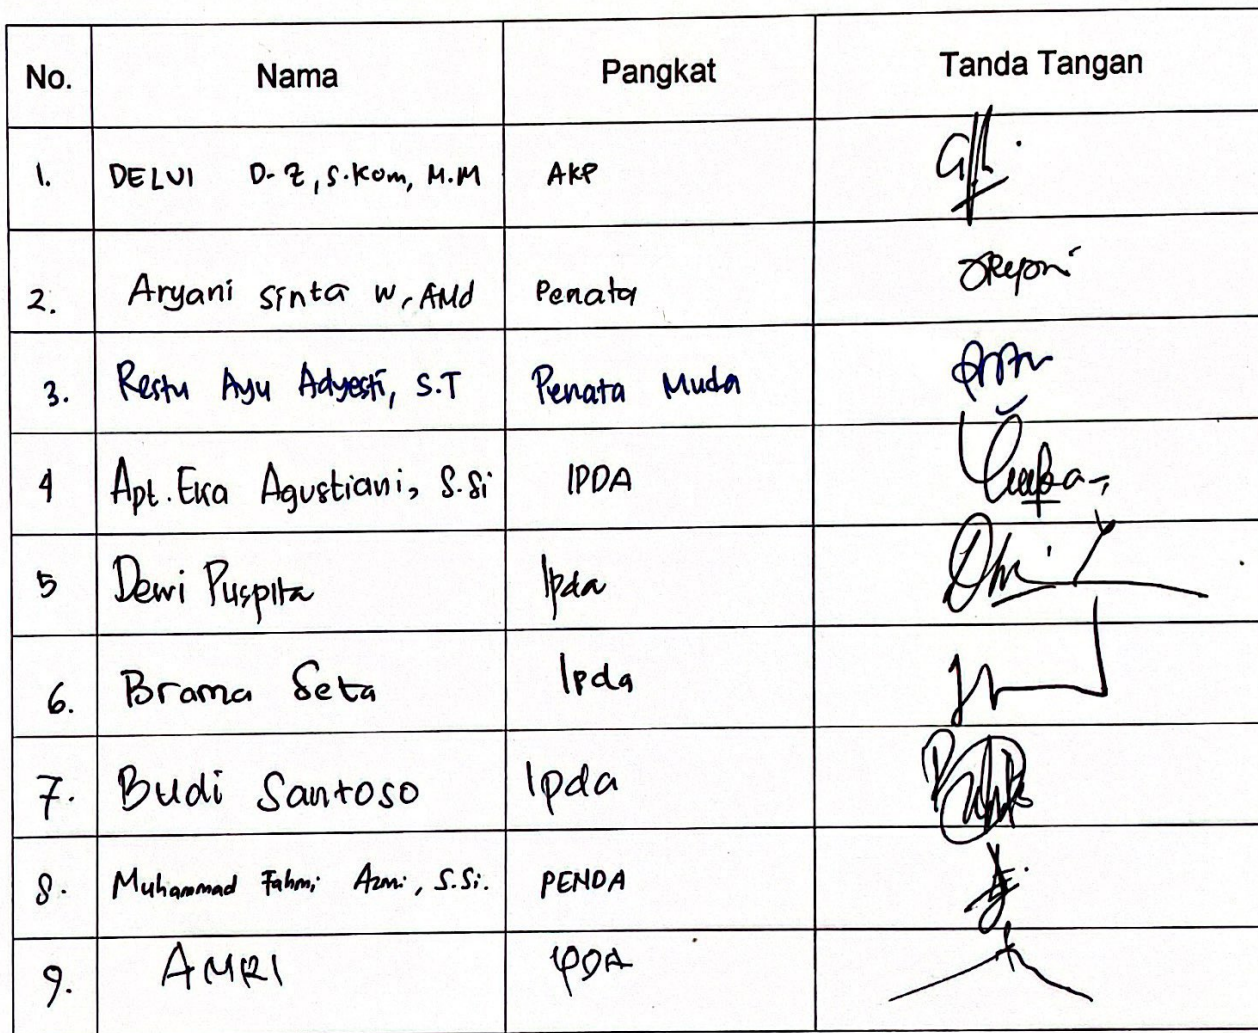 No. Nama Pangkat Tanda Tangan
1. DELVI D. Z, S.Kom, M.M AKP
2. Aryani Sinta W, AMd Penata
3. Restu Ayu Adyesti, S.T Penata Muda
4 Apt. Eka Agustiani, S.Si IPDA
5 Dewi Puspita Ipda
6. Brama Seta Ipda
7. Budi Santoso Ipda
8. Muhammad Fahmi Azmi, S.Si. PENDA
9. AMRI IPDA